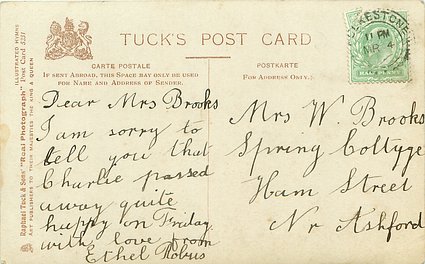 TUCK'S POST CARD
CARTE POSTALE
IF SENT ABROAD, THIS SPACE MAY ONLY BE USED
FOR NAME AND ADDRESS OF SENDER.
POSTKARTE
FOR ADDRESS ONLY.
ILLUSTRATED HYMNS
Post Card 5231
Raphael Tuck & Sons' "Real Photograph"
ART PUBLISHERS TO THEIR MAJESTIES THE KING & QUEEN
FOLKESTONE
11 PM
MR 4
HALF PENNY
Dear Mrs Brooks
I am sorry to
tell you that
Charlie passed
away quite
happy on Friday
with love from
Ethel
Mrs W. Brooks
Spring Cottyge
Ham Street
Nr Ashford